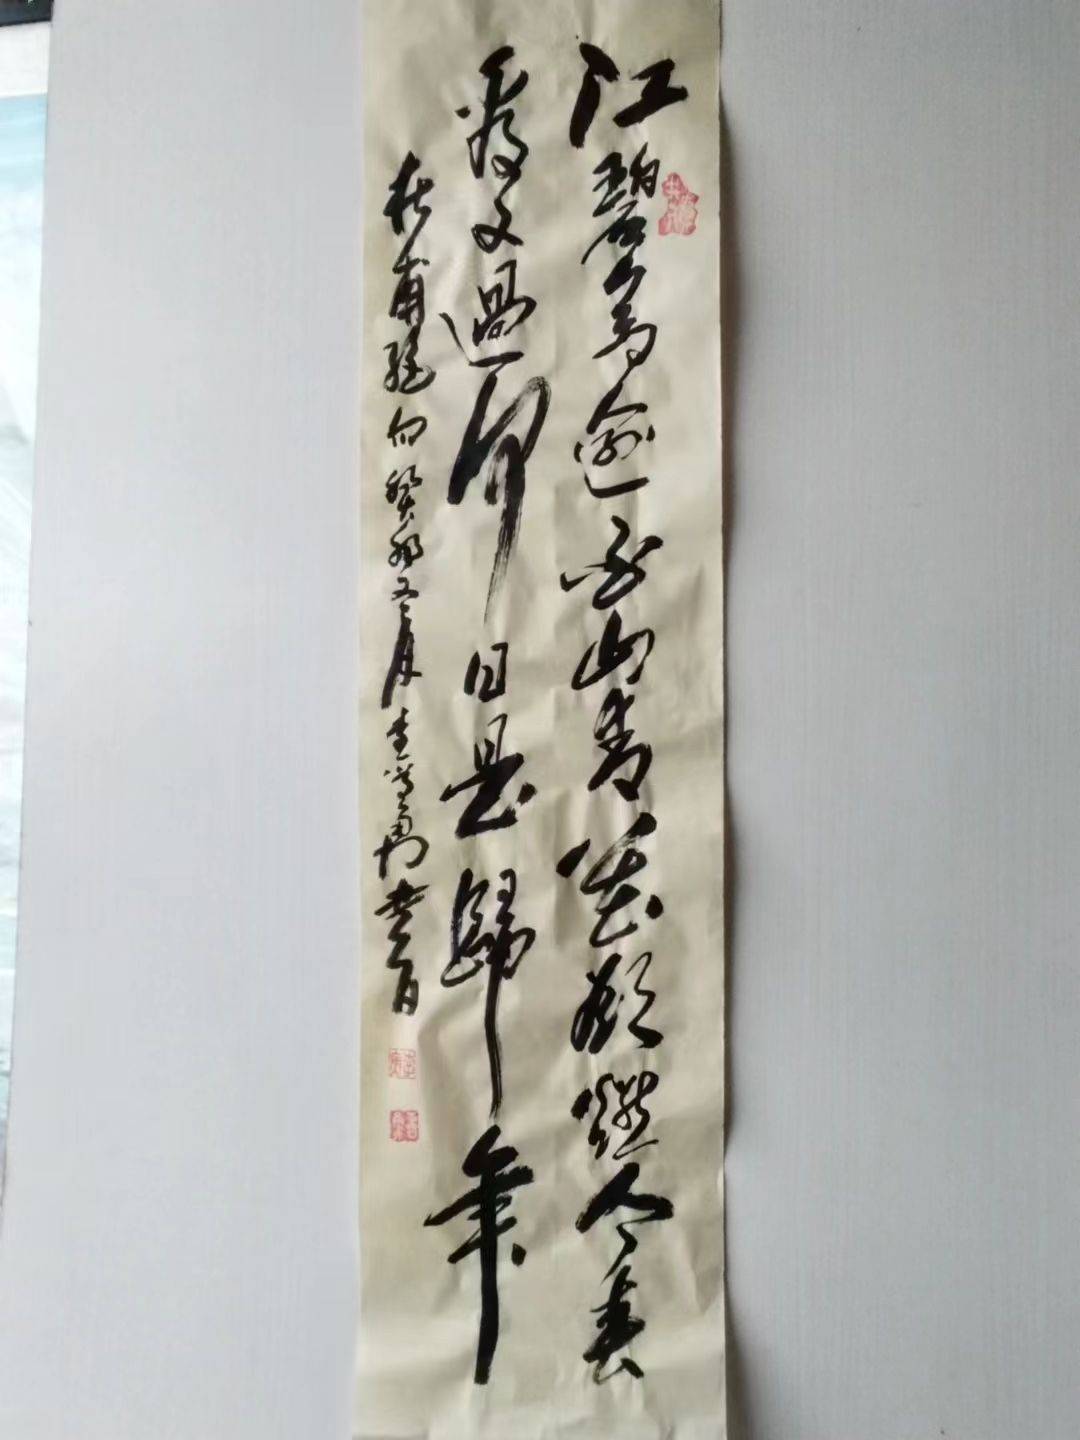 江碧鸟逾白山青花欲燃今春
看又过何日是歸年
杜甫绝句癸卯冬月李